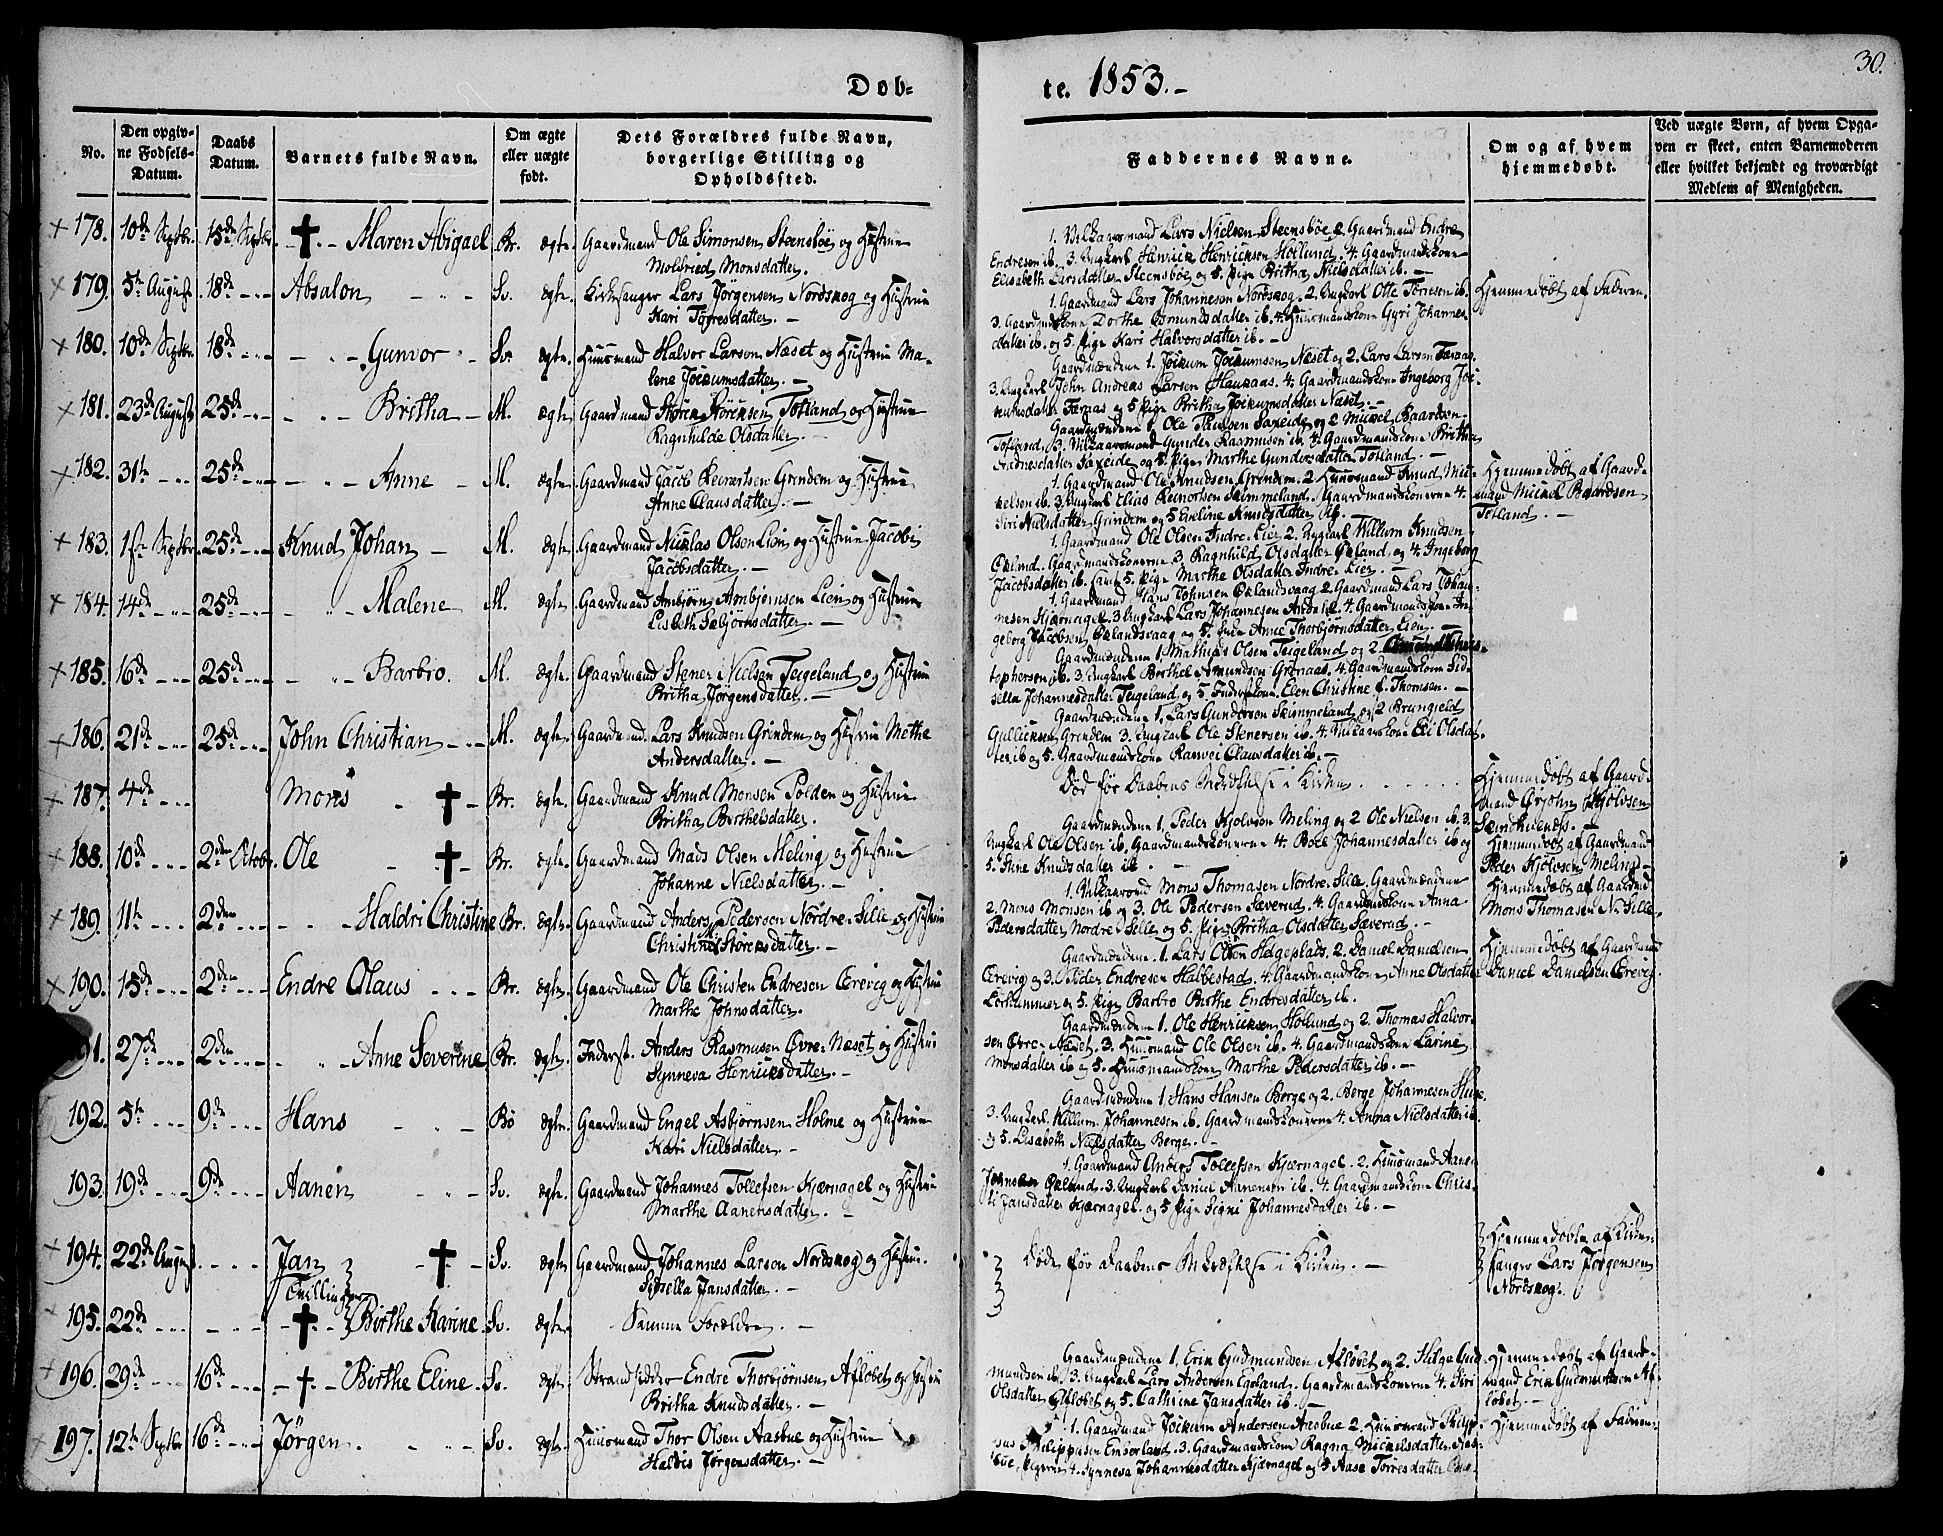 30.
Døb= te. 1853.-
No.
Den opgiv-
ne Fødsels-
Datum.
Daabs
Datum.
Barnets fulde Navn.
Om ægte
eller uægte
født.
Dets Forældres fulde Navn,
borgerlige Stilling og
Opholdssted.
Faddernes Navne.
Om og af hvem
hjemmedøbt.
Ved uægte Børn, af hvem Opga-
ven er skeet, enten Barnemoderen
eller hvilket bekjendt og troværdigt
Medlem af Menigheden.
178. 10de Septbr. 15de Septbr. Maren Abigael Br. ægte. Gaardmand Ole Simonsen Steensbøe og Hustrue
Molfried Monsdatter.
1. Vilkaarsmand Lars Nielsen Steensbøe, 2. Gaardmand Endre
Endresen ib. 3. Ungkarl Henrick Henricksen Hollund. 4. Gaardmandskone
Elisabeth Larsdatter Steensbøe og 5. Pige Britha Nielsdatter ib. -
179. 5te August 18de Absalon Sv. ægte. Kirkesanger Lars Jørgensen Nordskog og Hustrue
Kari Tørresdatter. -
1. Gaardmand Lars Johannesen Nordskog. 2. Ungkarl Otte Tørresen ib.
3. Gaardmdskone Dorthe Osmundsdatter ib. 4. Huusmandskone Gyri Johannes-
datter ib. og 5. Pige Kari Halvorsdatter ib. -
Hjemmedøbt af Faderen.
180. 10de Septbr. 18de Gunvor Sv. ægte. Huusmand Halvor Larsen Næset og Hustrue Ma-
lene Jockumsdatter. -
Gaardmændene 1. Jockum Jockumsen Næset og 2. Lars Larsen
3. Ungkarl John Andreas Larsen Haukaas. 4. Gaardmandskone Ingeborg Joc-
kumsdatter og 5. Pige Britha Jockumsdatter Næset. -
181. 23de August 25de Britha M. ægte. Gaardmand Støren Størensen Totland og Hustrue
Ragnhilde Olsdatter. -
Gaardmændene 1. Ole Paulsen Saxeide og 2. Mickel Baardsen
Totland. 3. Vilkaarsmand Gunder Rasmusen ib. 4. Gaardmandskone Britha
Saxeide og 5. Pige Marthe Gundersdatter Totland. -
182. 31te 25de Anne M. ægte. Gaardmand Jacob Reinertsen Grindem og Hustrue
Anne Clausdatter. -
1. Gaardmand Ole Knudsen Grindem. 2. Huusmand Knud Mic-
kelsen ib. 3. Ungkarl Elias Reinertsen Skimmeland. Gaardmandskonerne 4.
Siri Nielsdatter Grindem og 5. Eveline Knudsdatter ib. -
Hjemmedøbt af Gaard-
mand Mickel Baardsen
Totland. -
183. 1ste Septbr. 25de Knud Johan M. ægte. Gaardmand Nicklas Olsen Lien og Hustrue Jacobi
Jacobsdatter. -
1. Gaardmand Ole Olsen Indre-Lier. 2. Ungkarl Willum Knudsen
Økland. Gaardmandskonerne 3. Ragnhild Olsdatter Økland og 4. Ingeborg
Jacobsdatter ib. samt 5. Pige Marthe Olsdatter Indre-Lier. -
184. 14de 25de Malene M. ægte. Gaardmand Ambjørn Ambjørnsen Lien og Hustrue
Lisbeth Sebjørnsdatter. -
1. Gaardmand Hans Johnsen Øklandsvaag 2. Gaardmand Lars Johan-
nesen Kjærnagel. 3. Ungkarl Lars Johannesen 4. Gaardmandskone In-
geborg Jacobsen Øklandsvaag og 5. Pige Anne Thorbjørnsdatter Lien. -
185. 16de 25de Barbro. M. ægte. Gaardmand Stener Nielsen Teigeland og Hustrue
Britha Jørgensdatter. -
Gaardmændene 1. Mathias Olsen Teigeland og 2. Chris-
tophersen ib. 3. Ungkarl Berthel Amundsen Grønaas. 4. Gaardmandskone Sid-
sella Johannesdatter Teigeland og 5. Inderstkone Elen Christine f. Thomsen. -
186. 21de 25de John Christian M. ægte. Gaardmand Lars Knudsen Grindem og Hustrue Methe
Andersdatter. -
Gaardmændene 1. Lars Gundersen Skimmeland og 2. Brungield
Gullicksen Grindem 3. Ungkarl Ole Stenersen ib. 4. Vilkaarskone Eli Olsdat-
ter ib. og 5. Gaardmandskone Ranvei Clausdatter ib. -
187. 4de Mons Br. ægte. Gaardmand Knud Monsen Polden og Hustrue
Britha Berthelsdatter.
Død før Daabens Bekræftelse i Kirken
Hjemmedøbt af Gaard-
mand Ørjohn Kjølvsen
188. 10de 2den Octobr. Ole Br. ægte. Gaardmand Mads Olsen Meling og Hustrue
Johanne Nielsdatter. -
Gaardmændene 1. Peder Kjolvsen Meling og 2. Ole Nielsen ib. 3.
Ungkarl Ole Olsen ib. Gaardmandskonerne 4. Boel Johannesdatter ib. og
5. Stine Knudsdatter ib. -
Hjemmedøbt af Gaardmand
Peder Kjølvsen Meling. -
189. 11te 2den Haldri Christine Br. ægte. Gaardmand Anders Pedersen Nordre-Sille og Hustrue
Christine Størensdatter. -
1. Vilkaarsmd Mons Thomasen Nordre-Sille. Gaardmændene
2. Mons Monsen ib. og 3. Ole Pedersen Sæverud. 4. Gaardmdskone Anna
Pedersdatter Nordre-Sille og 5. Pige Britha Olsdatter Sæverud. -
Hjemmedøbt af Gaardmd
Mons Thomasen N. Sille.
190. 15de 2den Endre Olaus Br. ægte. Gaardmand Ole Christen Endresen Ærevig og Hustrue
Marthe Johnsdatter. -
Gaardmændene 1. Lars Olsen Helgeplads. 2. Daniel Danielsen
Ærevig og 3. Peder Endresen Halbestad. 4. Gaardmandskone Anne Olsdatter
Lørhammer og 5. Pige Barbro Birthe Endresdatter ib.
Hjemmedøbt af Gaardmand
Daniel Danielsen Ærevig.
191. 27de 2den Anne Severine Br. ægte. Inderst. Anders Rasmusen Øvre-Næset og Hustrue
Synneva Henricksdatter. -
Gaardmændene 1. Ole Henricksen Hollund og 2. Thomas Halvor-
sen Øvre-Næset. 3. Huusmand Ole Olsen ib. 4. Gaardmandskone Larine
Monsdatter ib. og 5. Huusmandskone Marthe Pedersdatter ib. -
192. 5te 9de Hans Bø ægte. Gaardmand Engel Asbjørnsen Holme og Hustrue
Kari Nielsdatter. -
Gaardmændene 1. Hans Hansen Berge og 2. Berge Johannesen
3. Ungkarl Killum Johannesen ib. Gaardmandskonerne 4. Anna Nielsdatter ib.
og 5. Lisabeth Nielsdatter Berge. -
193. 19de 9de Aanen Sv. ægte. Gaardmand Johannes Tollefsen Kjærnagel og Hustrue
Marthe Aanensdatter. -
1. Gaardmand Anders Tollefsen Kjærnagel. 2. Huusmand Aanen
Johnsen Økland. 3. Ungkarl Daniel Aanensen ib. 4. Gaardmandskone Chris-
ti Jansdatter Kjærnagel. og 5. Pige Signi Johannesdatter ib. -
194. 22de August Jan Sv. ægte Gaardmand Johannes Larsen Nordskog og Hustrue.
Sidsella Jansdatter. -
Døde før Daabens Bekræftelse i Kirken. -
Hjemmedøbte af Kirke-
sanger Lars Jørgensen
Nordskog.
Tvillinger
195. 22de Birthe Karine Sv. ægte. Samme Forældre. -
196. 29de 16de Birthe Eline Sv. ægte Strandsidder Endre Thorbjørnsen Afløbet og Hustrue
Britha Knudsdatter. -
Gaardmændene 1. Erik Gudmundsen Afløbet og 2. Helge Gud-
mundsen ib. 3. Ungkarl Lars Andersen Egeland. Gaardmandskonerne 4. Siri
Olsdatter Afløbet og 5. Cathrine Jansdatter ib. -
Hjemmedøbt af Gaard-
mand Erik Gudmundsen Af-
løbet. -
197. 12te Septbr 16de Jørgen Sv. ægte Huusmand Thor Olsen Aasbue og Hustrue
Haldis Jørgensdatter. -
1. Gaardmand Jockum Andersen Aasbue 2. Huusmand Philip-
pus Philippusen Emberland. 3. Gaardmandskone Ragna Mickelsdatter Aas-
bue, Pigerne 4. Synneva Johannesdatter Kjærnagel og 5. Aase Tørresdatter
Hjemmedøbt af Faderen.